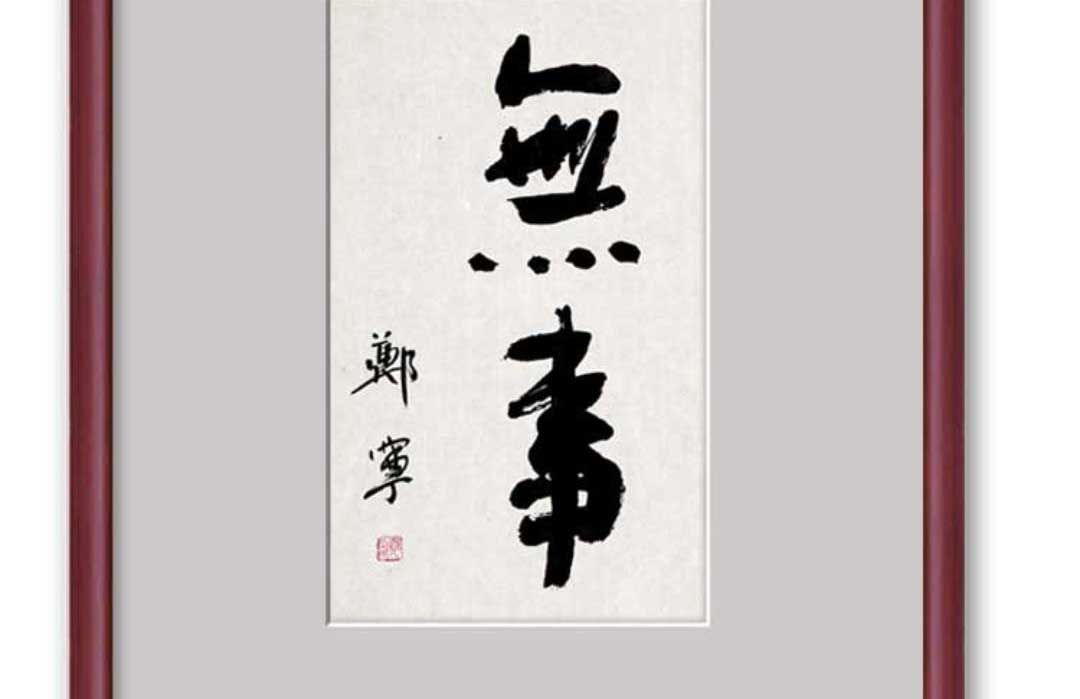 無事
鄭寧